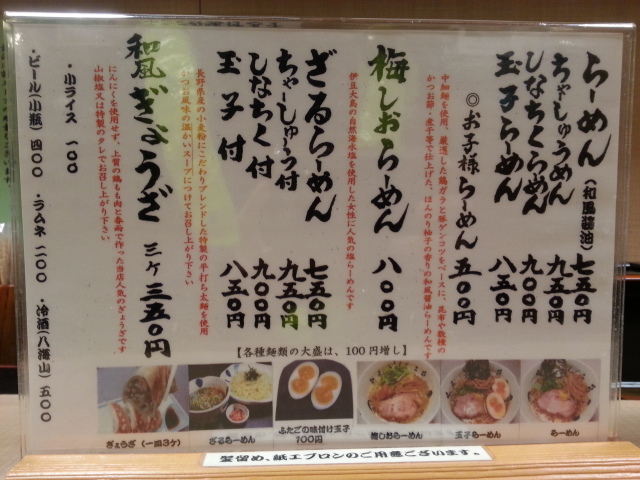 らーめん(和風醤油) 七五〇円
ちゃーしゅうめん 九五〇円
しなちくらーめん 九〇〇円
玉子らーめん 八五〇円
中細麺を使用し、厳選した鶏ガラと豚ゲンコツをベースに、昆布や数種の
かつお節・煮干等で仕上げた、ほんのり柚子の香りの和風醤油らーめんです
◎お子様らーめん 五〇〇円
梅しおらーめん 八〇〇円
伊豆大島の自然海水塩を使用した女性に人気の塩らーめんです
ざるらーめん 七五〇円
ちゃーしゅーう付 九五〇円
しなちく付 九〇〇円
玉子付 八五〇円
長野県産の小麦粉にこだわりブレンドした特製の平打ち太麺を使用
かつお風味の温かいスープにつけてお召し上がり下さい
和風ぎょうざ 三ヶ 三五〇円
にんにくを使用せず、上質の鶏もも肉と春雨で作った当店人気のぎょうざです
山椒塩又は特製のタレでお召し上がり下さい
・小ライス 一〇〇
・ビール(小瓶) 四〇〇
・ラムネ 二〇〇
・冷酒(八海山) 五〇〇
【各種麺類の大盛は、100円増し】
ぎょうざ(一皿3ケ)
ざるらーめん
ふたごの味付け玉子
100円
梅しおらーめん
玉子らーめん
らーめん
髪留め、紙エプロンのご用意ございます。